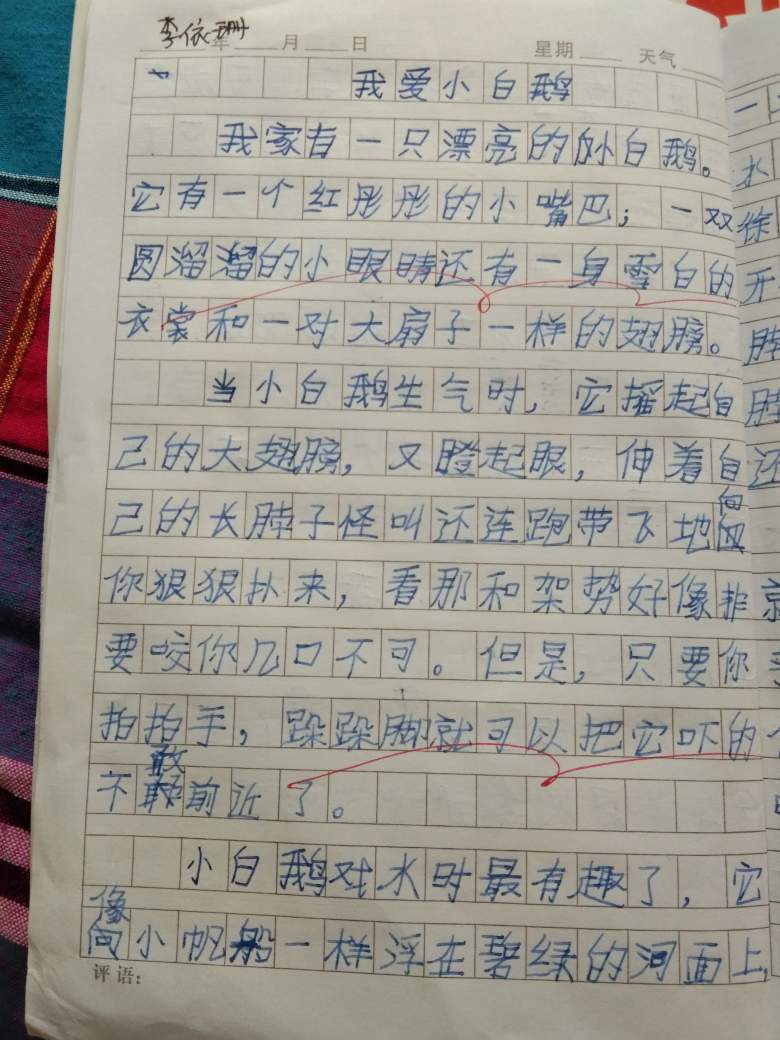 李依珊
年 月 日 星期 天气
我爱小白鹅
我家有一只漂亮的小白鹅。
它有一个红彤彤的小嘴巴；一双
圆溜溜的小眼睛还有一身雪白的
衣裳和一对大扇子一样的翅膀。
当小白鹅生气时，它摇起自
己的大翅膀，又瞪起眼，伸着自
己的长脖子怪叫还连跑带飞地向
你狠狠扑来，看那和架势好像非
要咬你几口不可。但是，只要你
拍拍手，跺跺脚就可以把它吓的
不敢前近了。
小白鹅戏水时最有趣了，它
像小帆船一样浮在碧绿的河面上，
评语：